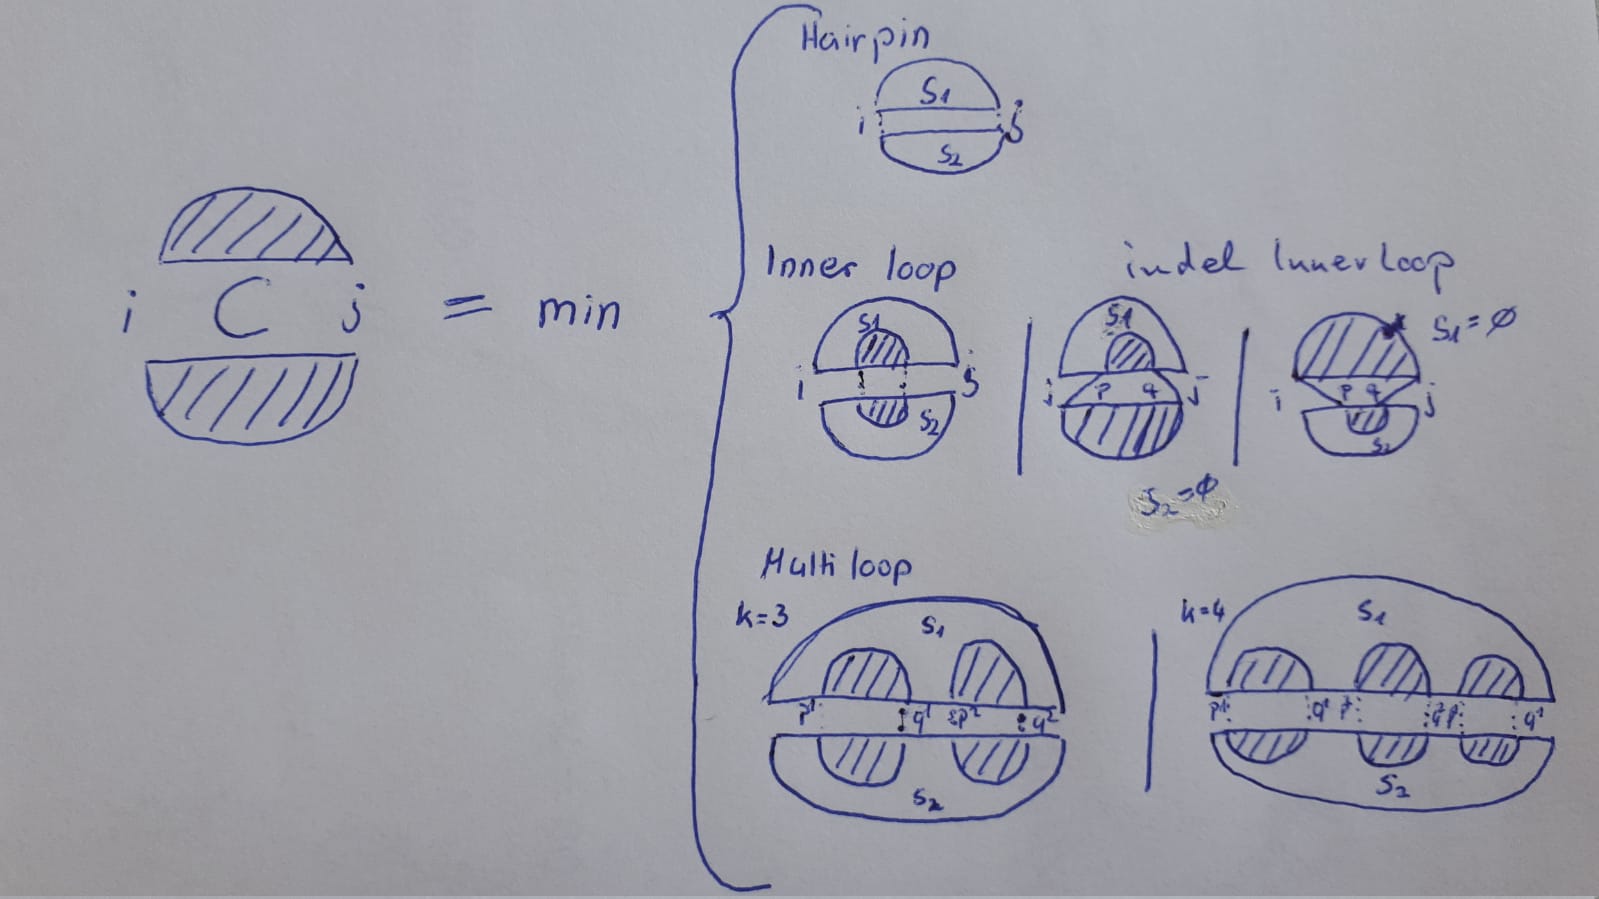 Hairpin
S1
i j
S2
i C j = min
Inner loop
S1
i j
S2
indel Inner loop
S1
i p q j
S2=∅
S1=∅
i p q j
S2
Multi loop
k=3
S1
p¹ q¹ p² q²
S2
k=4
S1
p¹ q¹
S2